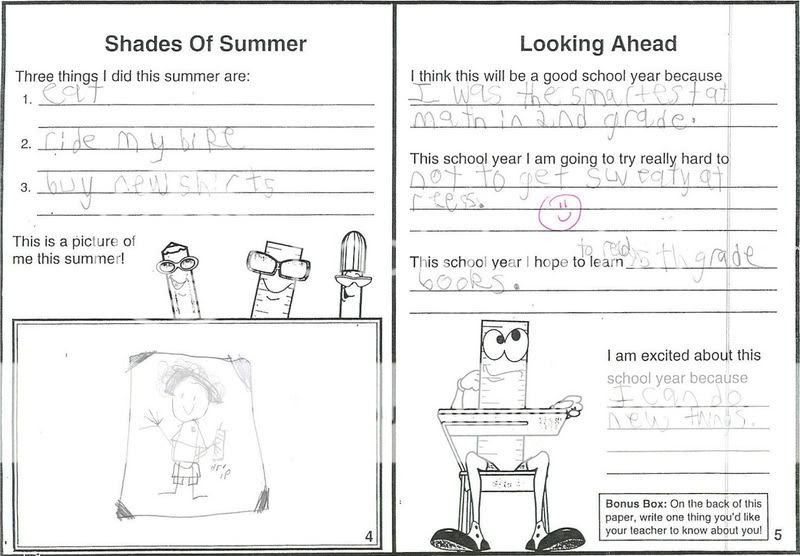 Shades Of Summer
Three things I did this summer are:
1. eat
2. ride my bike
3. buy new shirts
This is a picture of
me this summer!
4
Looking Ahead
I think this will be a good school year because
I was the smartest at
math in 2nd grade.
This school year I am going to try really hard to
not to get sweaty at
reess.
This school year I hope to learn to read 5th grade
books.
I am excited about this
school year because
I can do
new things.
Bonus Box: On the back of this
paper, write one thing you'd like
your teacher to know about you!
5